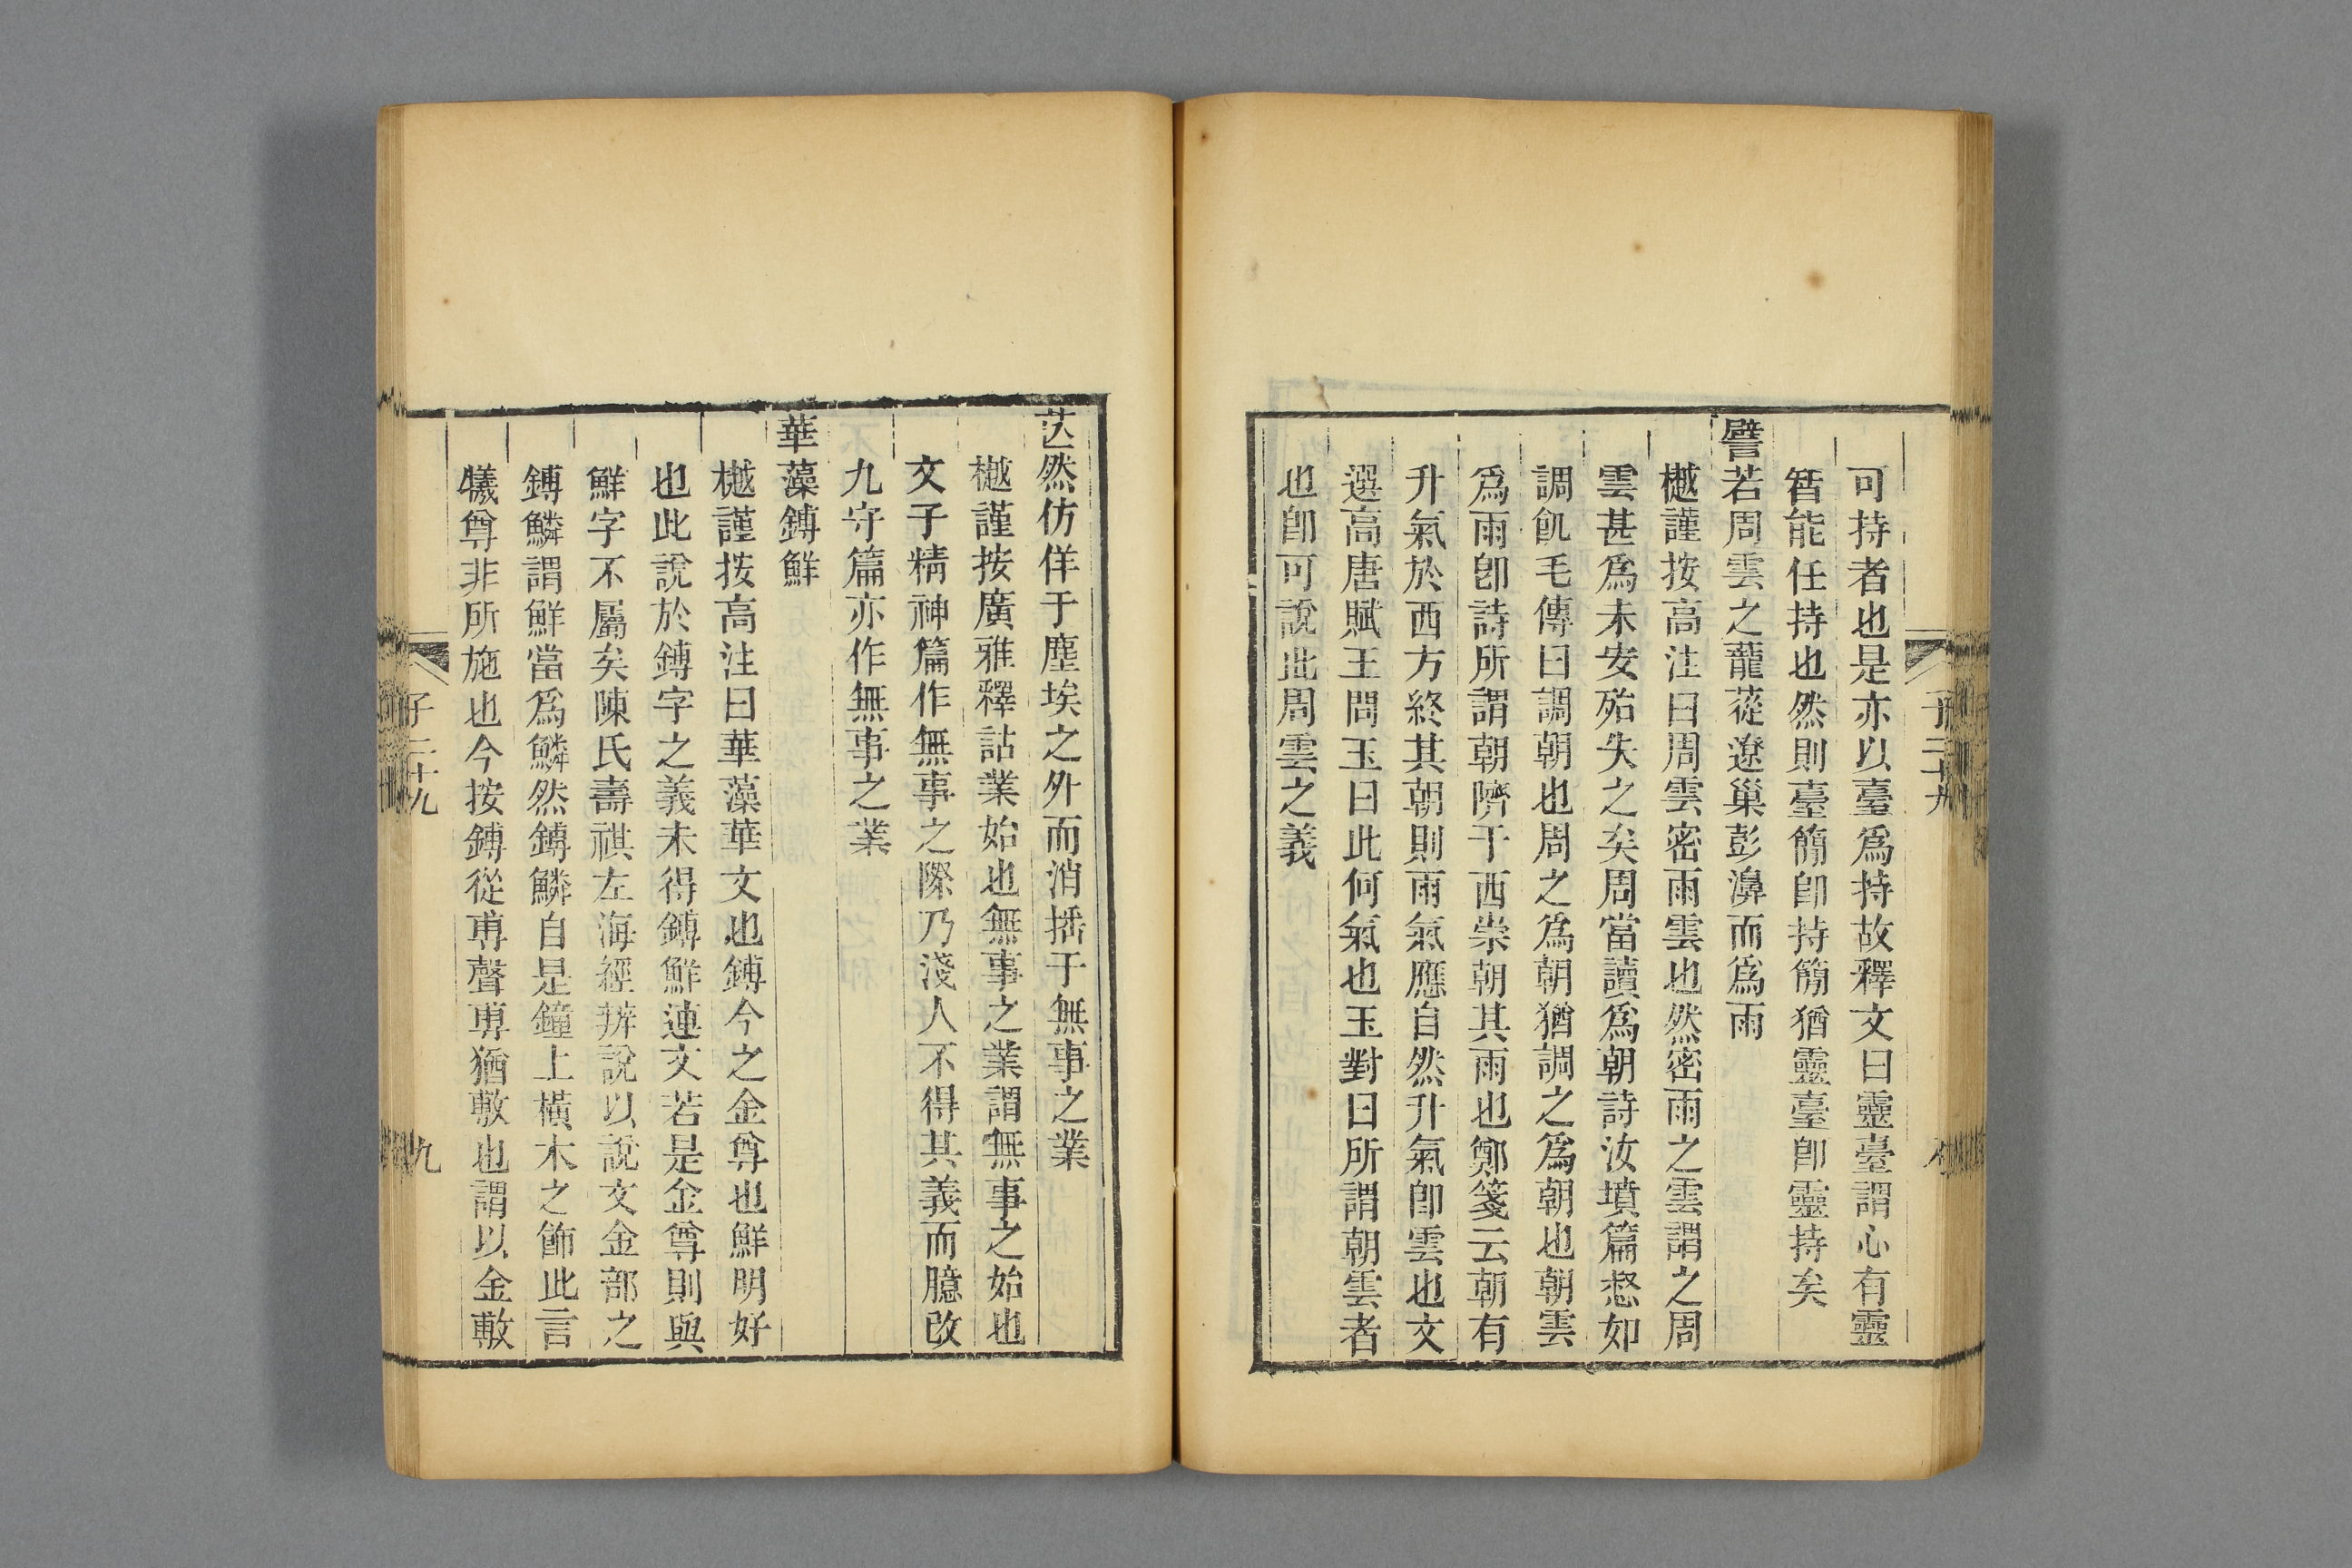 可持者也是亦以臺爲持故釋文曰靈臺謂心有靈
智能任持也然則臺簡卽持簡猶靈臺卽靈持矣
譬若周雲之蘢蓯遼巢彭濞而爲雨
樾謹按高注曰周雲密雨雲也然密雨之雲謂之周
雲甚爲未安殆失之矣周當讀爲朝詩汝墳篇惄如
調飢毛傳曰調朝也周之爲朝猶調之爲朝也朝雲
爲雨卽詩所謂朝隮于西崇朝其雨也鄭箋云朝有
升氣於西方終其朝則雨氣應自然升氣卽雲也文
選高唐賦王問玉曰此何氣也玉對曰所謂朝雲者
也卽可說此周雲之義
子二十九
九
芒然仿佯于塵埃之外而消搖于無事之業
樾謹按廣雅釋詁業始也無事之業謂無事之始也
文子精神篇作無事之際乃淺人不得其義而臆改
九守篇亦作無事之業
華藻鎛鮮
樾謹按高注曰華藻華文也鎛今之金尊也鮮明好
也此說於鎛字之義未得鎛鮮連文若是金尊則與
鮮字不屬矣陳氏壽祺左海經辨說以說文金部之
鎛鱗謂鮮當爲鱗然鎛鱗自是鐘上橫木之飾此言
犧尊非所施也今按鎛從尃聲尃猶敷也謂以金敷
子二十九
九